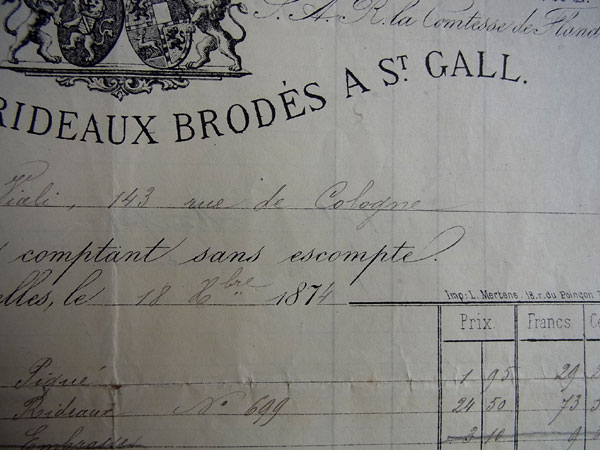 S. A. R. la Comtesse de Fland
RIDEAUX BRODÉS A ST GALL.
143 rue de Cologne
comptant sans escompte.
elles, le 18 Xbre 1874
Imp: L. Mertens, 18. r. du Poinçon
Prix. Francs. Ce
Piqué 1 95 29 2
Rideaux No 699 24 50 73 5
Embrasses 3 10 9